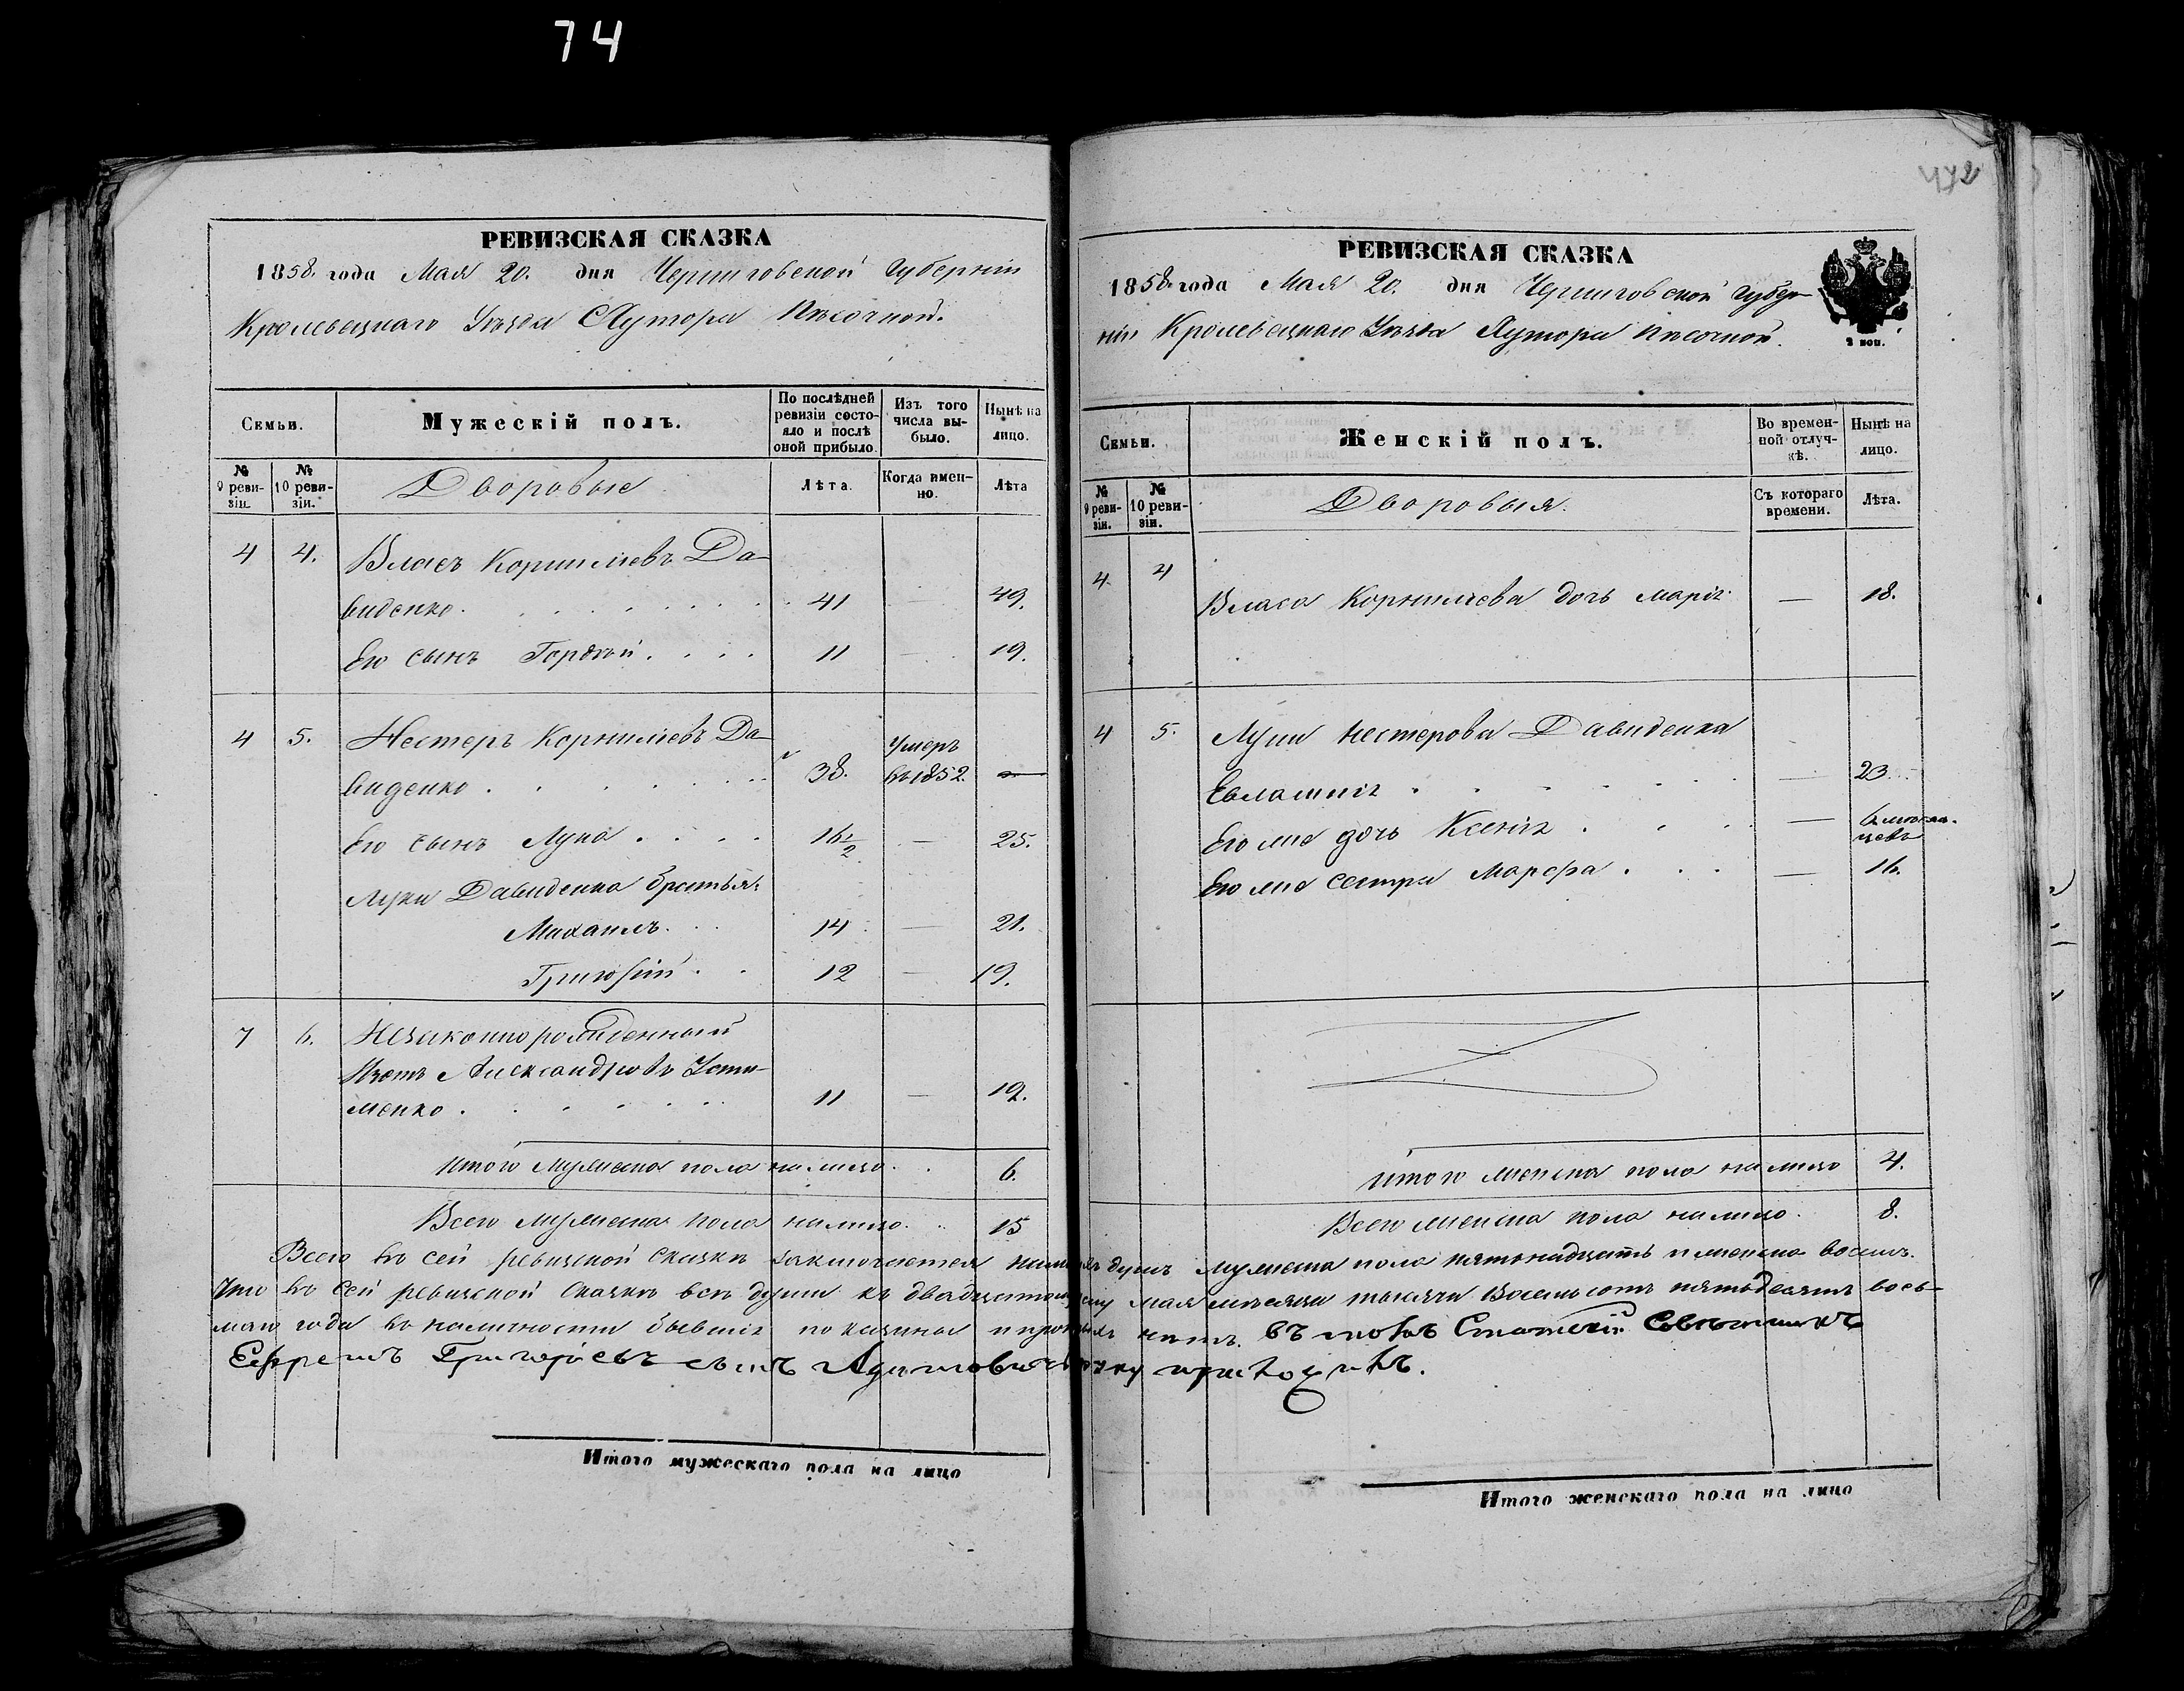 74
472
РЕВИЗСКАЯ СКАЗКА
1858. года Мая 20. дня Черниговской Губерніи
Кролевецкаго Уѣзда Хутора Пѣсочной.
Семьи.
Мужескій полъ.
По послѣдней ревизіи состояло и послѣ оной прибыло.
Изъ того числа выбыло.
Нынѣ на лицо.
№ 9 ревизіи.
№ 10 ревизіи.
Дворовые
Лѣта.
Когда именно.
Лѣта
4 4. Власъ Корниліевъ Да-
виденко. 41 49.
Его сынъ Гордѣй. 11 — 19.
4 5. Нестеръ Корниліевъ Да-
виденко. 38. Умеръ въ 1852. —
Его сынъ Лука. 16½ — 25.
Луки Давиденка братья:
Михаилъ. 14 — 21.
Григорій. 12 — 19.
7 6. Незаконнорожденный
Александровъ Усти-
менко. 11 — 19.
Итого мужеска пола на лицо. 6.
Всего мужеска пола на лицо. 15
РЕВИЗСКАЯ СКАЗКА
1858. года Мая 20. дня Черниговской Губер-
ніи Кролевецкаго Уѣзда Хутора Пѣсочной.
2 коп.
Семьи.
Женскій полъ.
Во временной отлучкѣ.
Нынѣ на лицо.
№ 9 ревизіи.
№ 10 ревизіи.
Дворовыя.
Съ котораго времени.
Лѣта.
4. 4 Власа Корниліева дочь Марія — 18.
4 5. Луки Нестерова Давиденка
Евлампія — 23.
Его же дочь Ксенія — 6 мѣсяцевъ
Его же сестра Марфа — 16.
Итого женска пола на лицо 4.
Всего женска пола на лицо. 8.
Всего въ сей ревизской сказкѣ заключается душъ мужеска пола пятнадцать и женска восемь.
Что въ сей ревизской сказкѣ всѣ души къ двадцатому мая мѣсяца тысяча восемьсотъ пятьдесятъ вось-
маго года въ наличности бывшія показаны и нѣтъ. Въ томъ Статскій Совѣтникъ
Ефремъ Григорьевъ сынъ Адамовичъ руку приложилъ.
Итого мужескаго пола на лицо
Итого женскаго пола на лицо